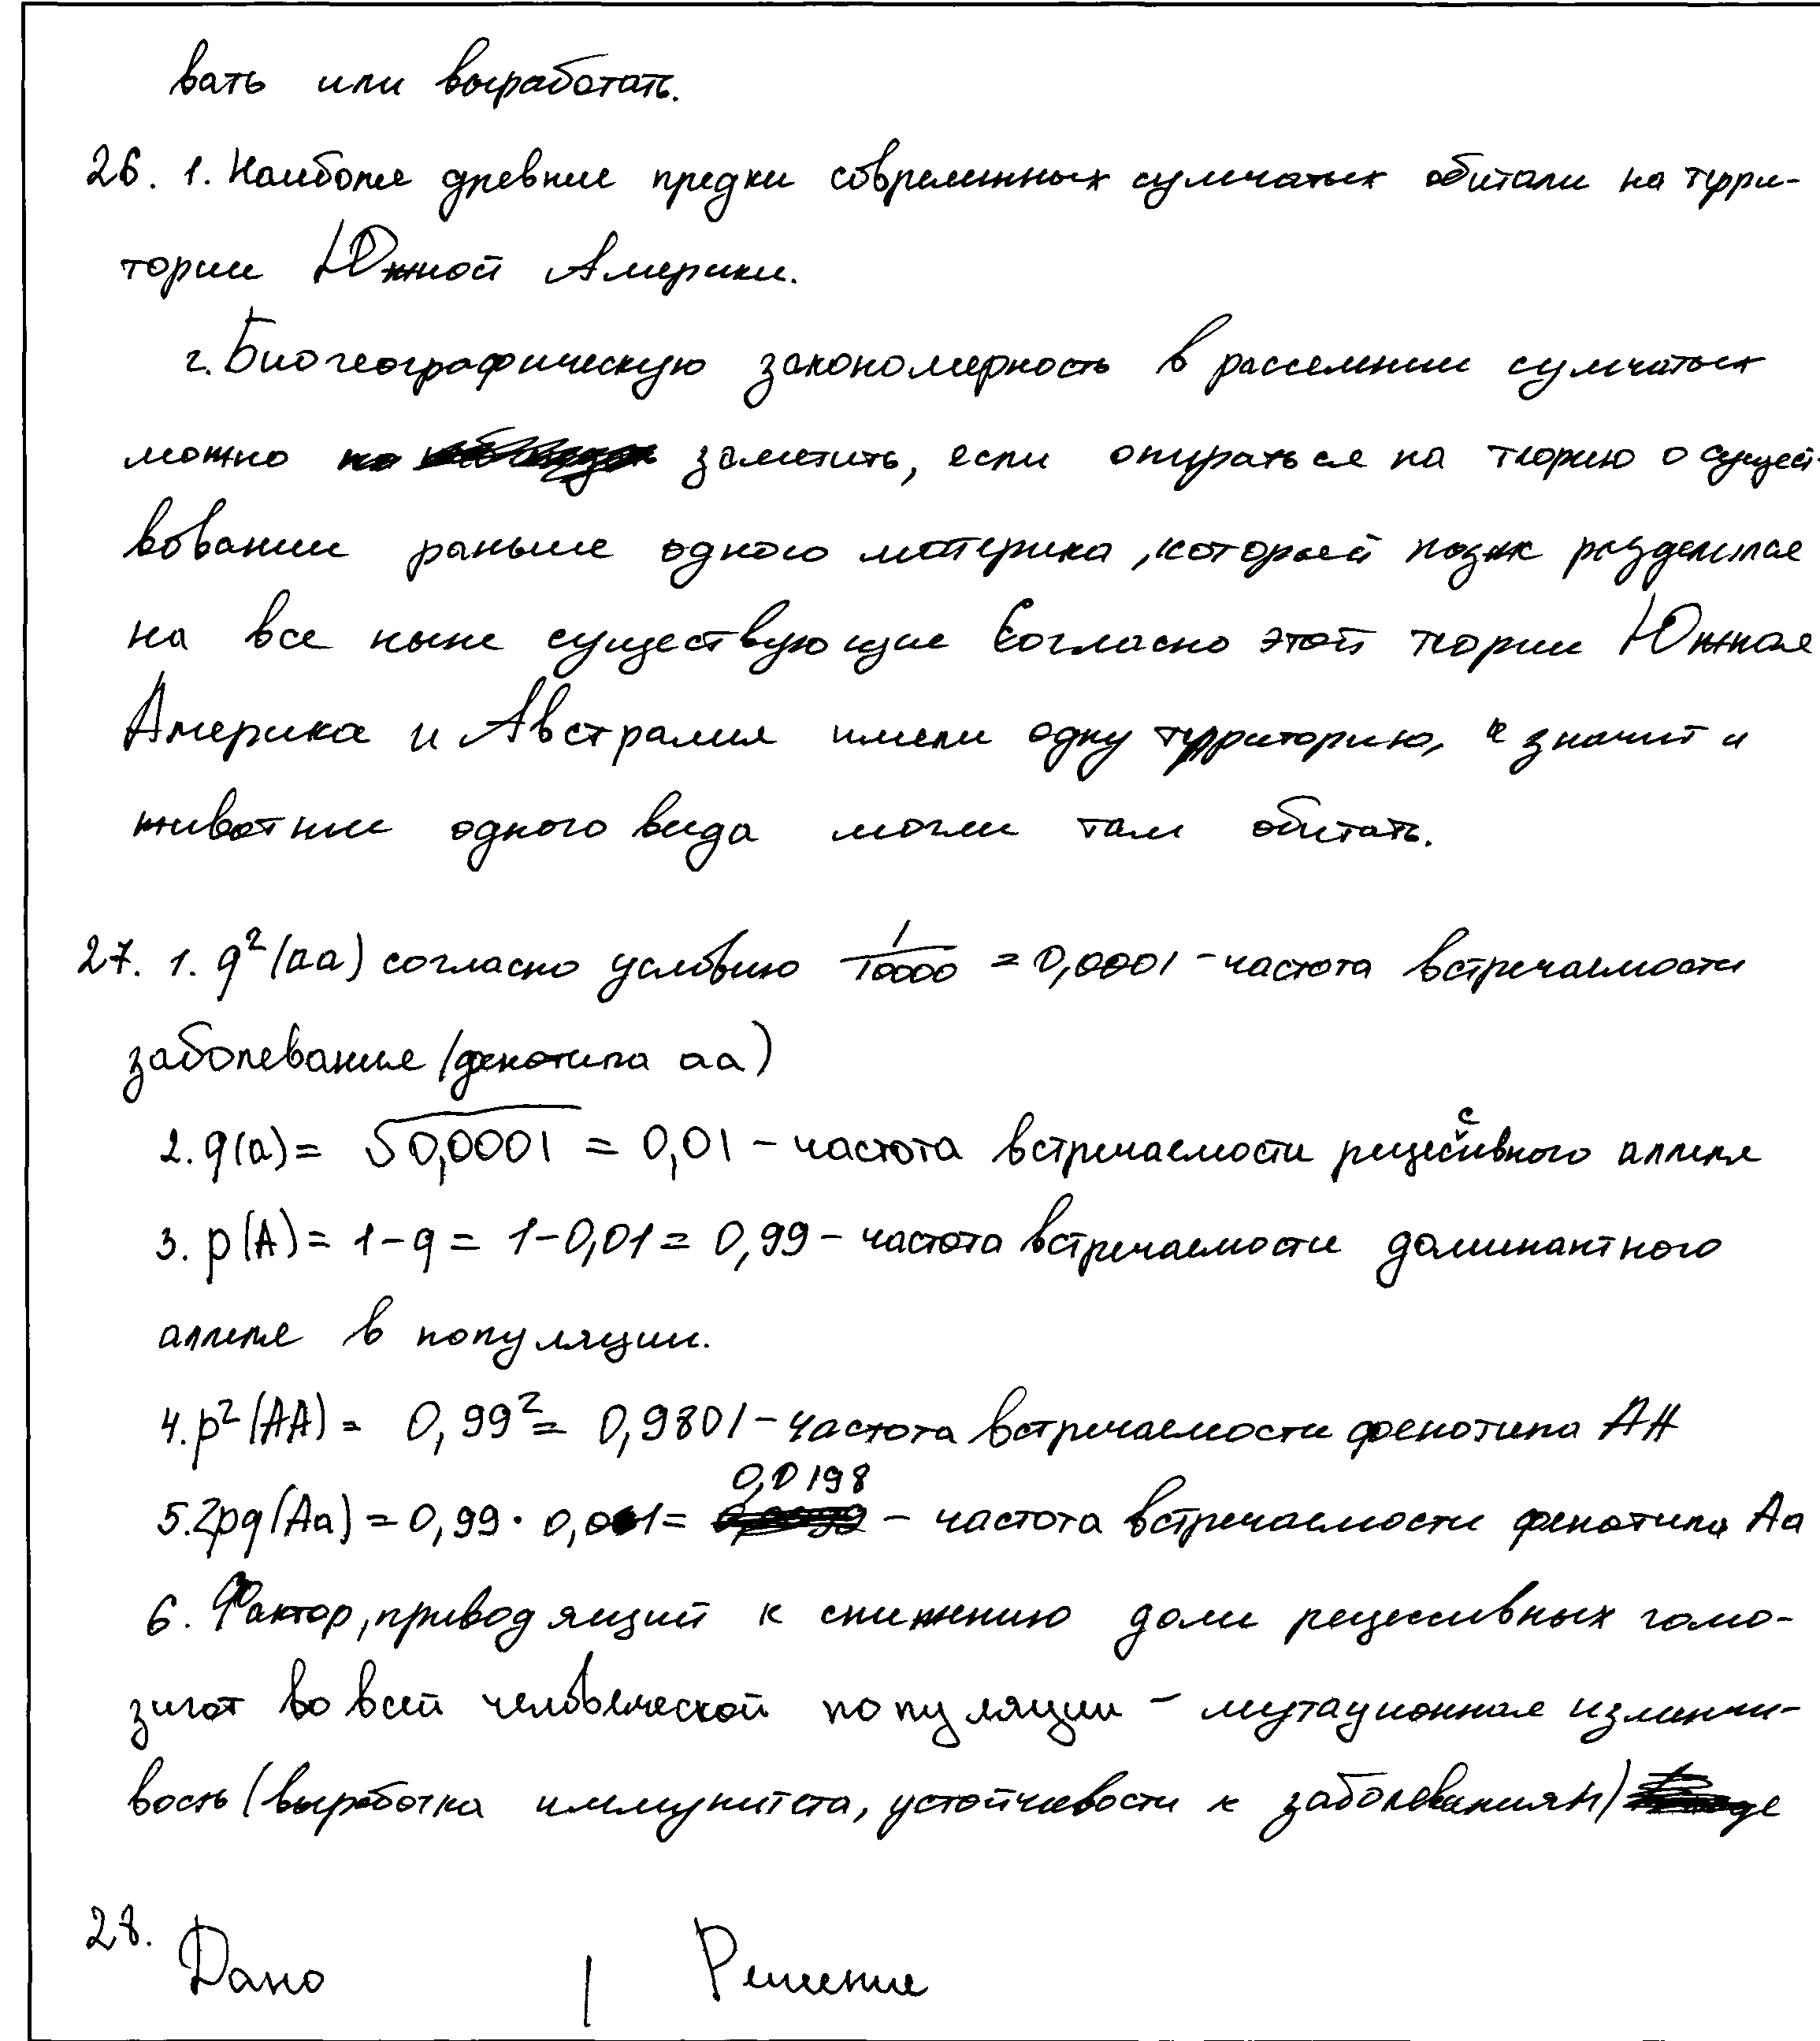 вать или выработать.
26. 1. Наиболее древние предки современных сумчатых обитали на терри-
тории Южной Америки.
2. Биогеографическую закономерность в расселении сумчатых
можно заметить, если опираться на теорию о сущест-
вовании раньше одного материка, который позже разделился
на все ныне существующие Согласно этой теории Южная
Америка и Австралия имели одну территорию, а значит и
животные одного вида могли там обитать.
27. 1. q²(aa) согласно условию 1/10000 = 0,0001 - частота встречаемости
заболевания (фенотипа aa)
2. q(a) = √0,0001 = 0,01 - частота встречаемости рецессивного аллеля
3. p(A) = 1-q = 1-0,01 = 0,99 - частота встречаемости доминантного
аллеля в популяции.
4. p²(AA) = 0,99² = 0,9801 - частота встречаемости фенотипа AA
5. 2pq(Aa) = 0,99 · 0,01 = 0,0198 - частота встречаемости фенотипа Aa
6. Фактор, приводящий к снижению доли рецессивных гомо-
зигот во всей человеческой популяции - мутационная изменчи-
вость (выработка иммунитета, устойчивости к заболеваниям)
28. Дано | Решение